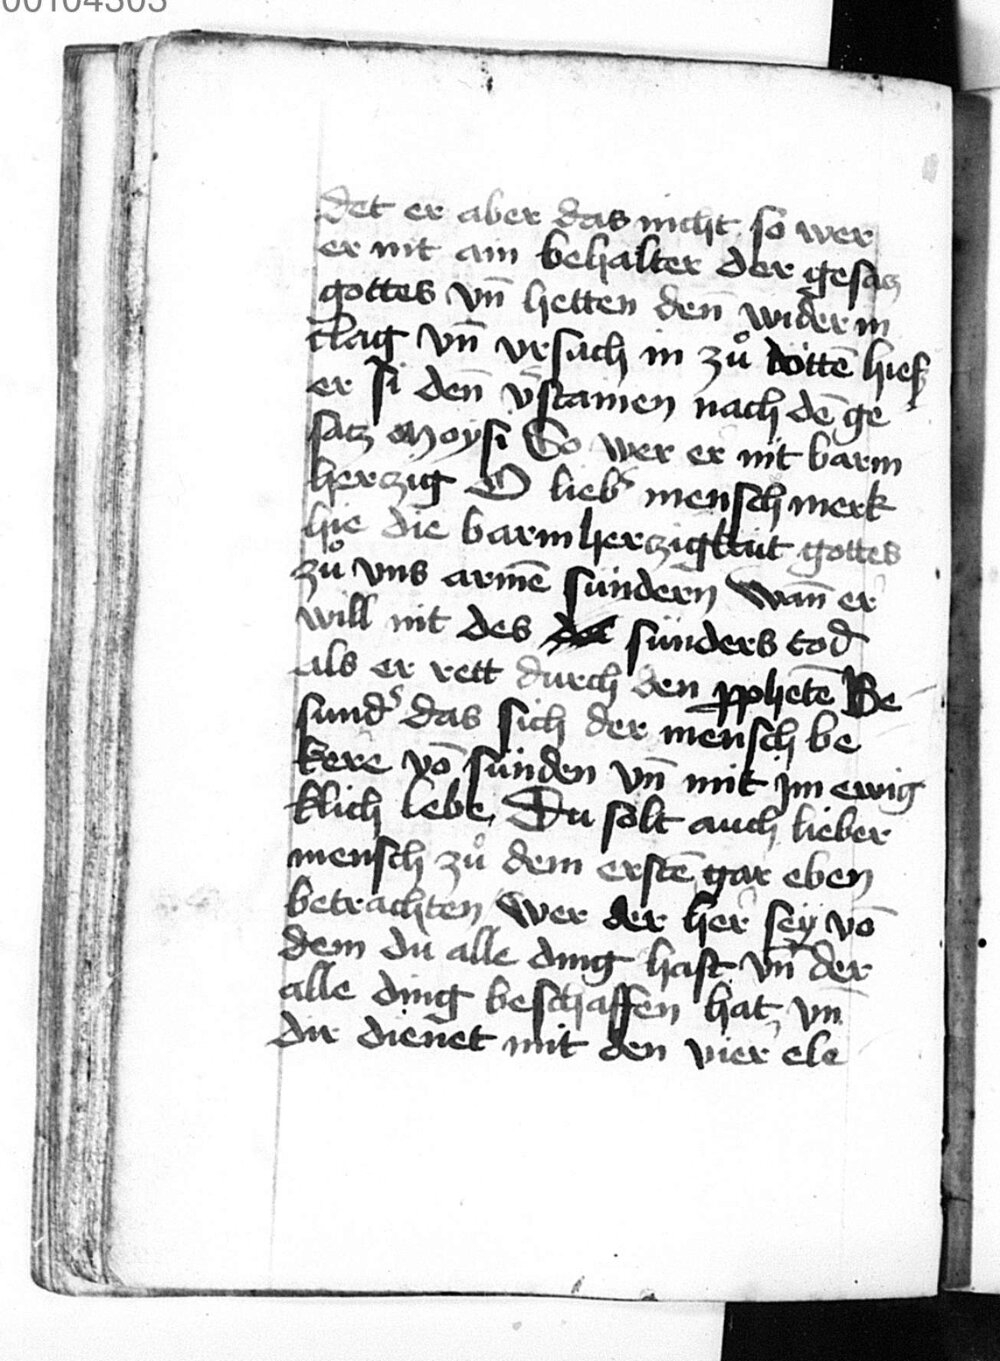 00104303
det er aber das nicht so wer
er nit ain behalter der gesacz
gottes vn̄ hetten den̄ wider in
clag vn̄ vrsach in zů dötten hieſ
er si den̄ v̄stainen nach dē ge
satz Moysi So wer er nit barm
herczig O lieb̾ mensch merk
hie die barmherczigkait gottes
zů vns armē sündern Wan̄ er
will nit des sünders tod
als er rett durch den ꝓphetē Be
sund̾ das sich der mensch be
kere vō sünden vn̄ mit jm ewig
klich lebe, Du solt auch lieber
mensch zů dem erstē gar eben
betrachten Wer der her sey vō
dem du alle ding hast vn̄ der
alle ding beschaffen hat vn̄
dir dienet mit den vier ele